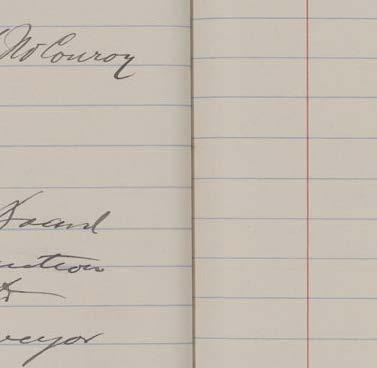 McConroy
Board
uction
veyor